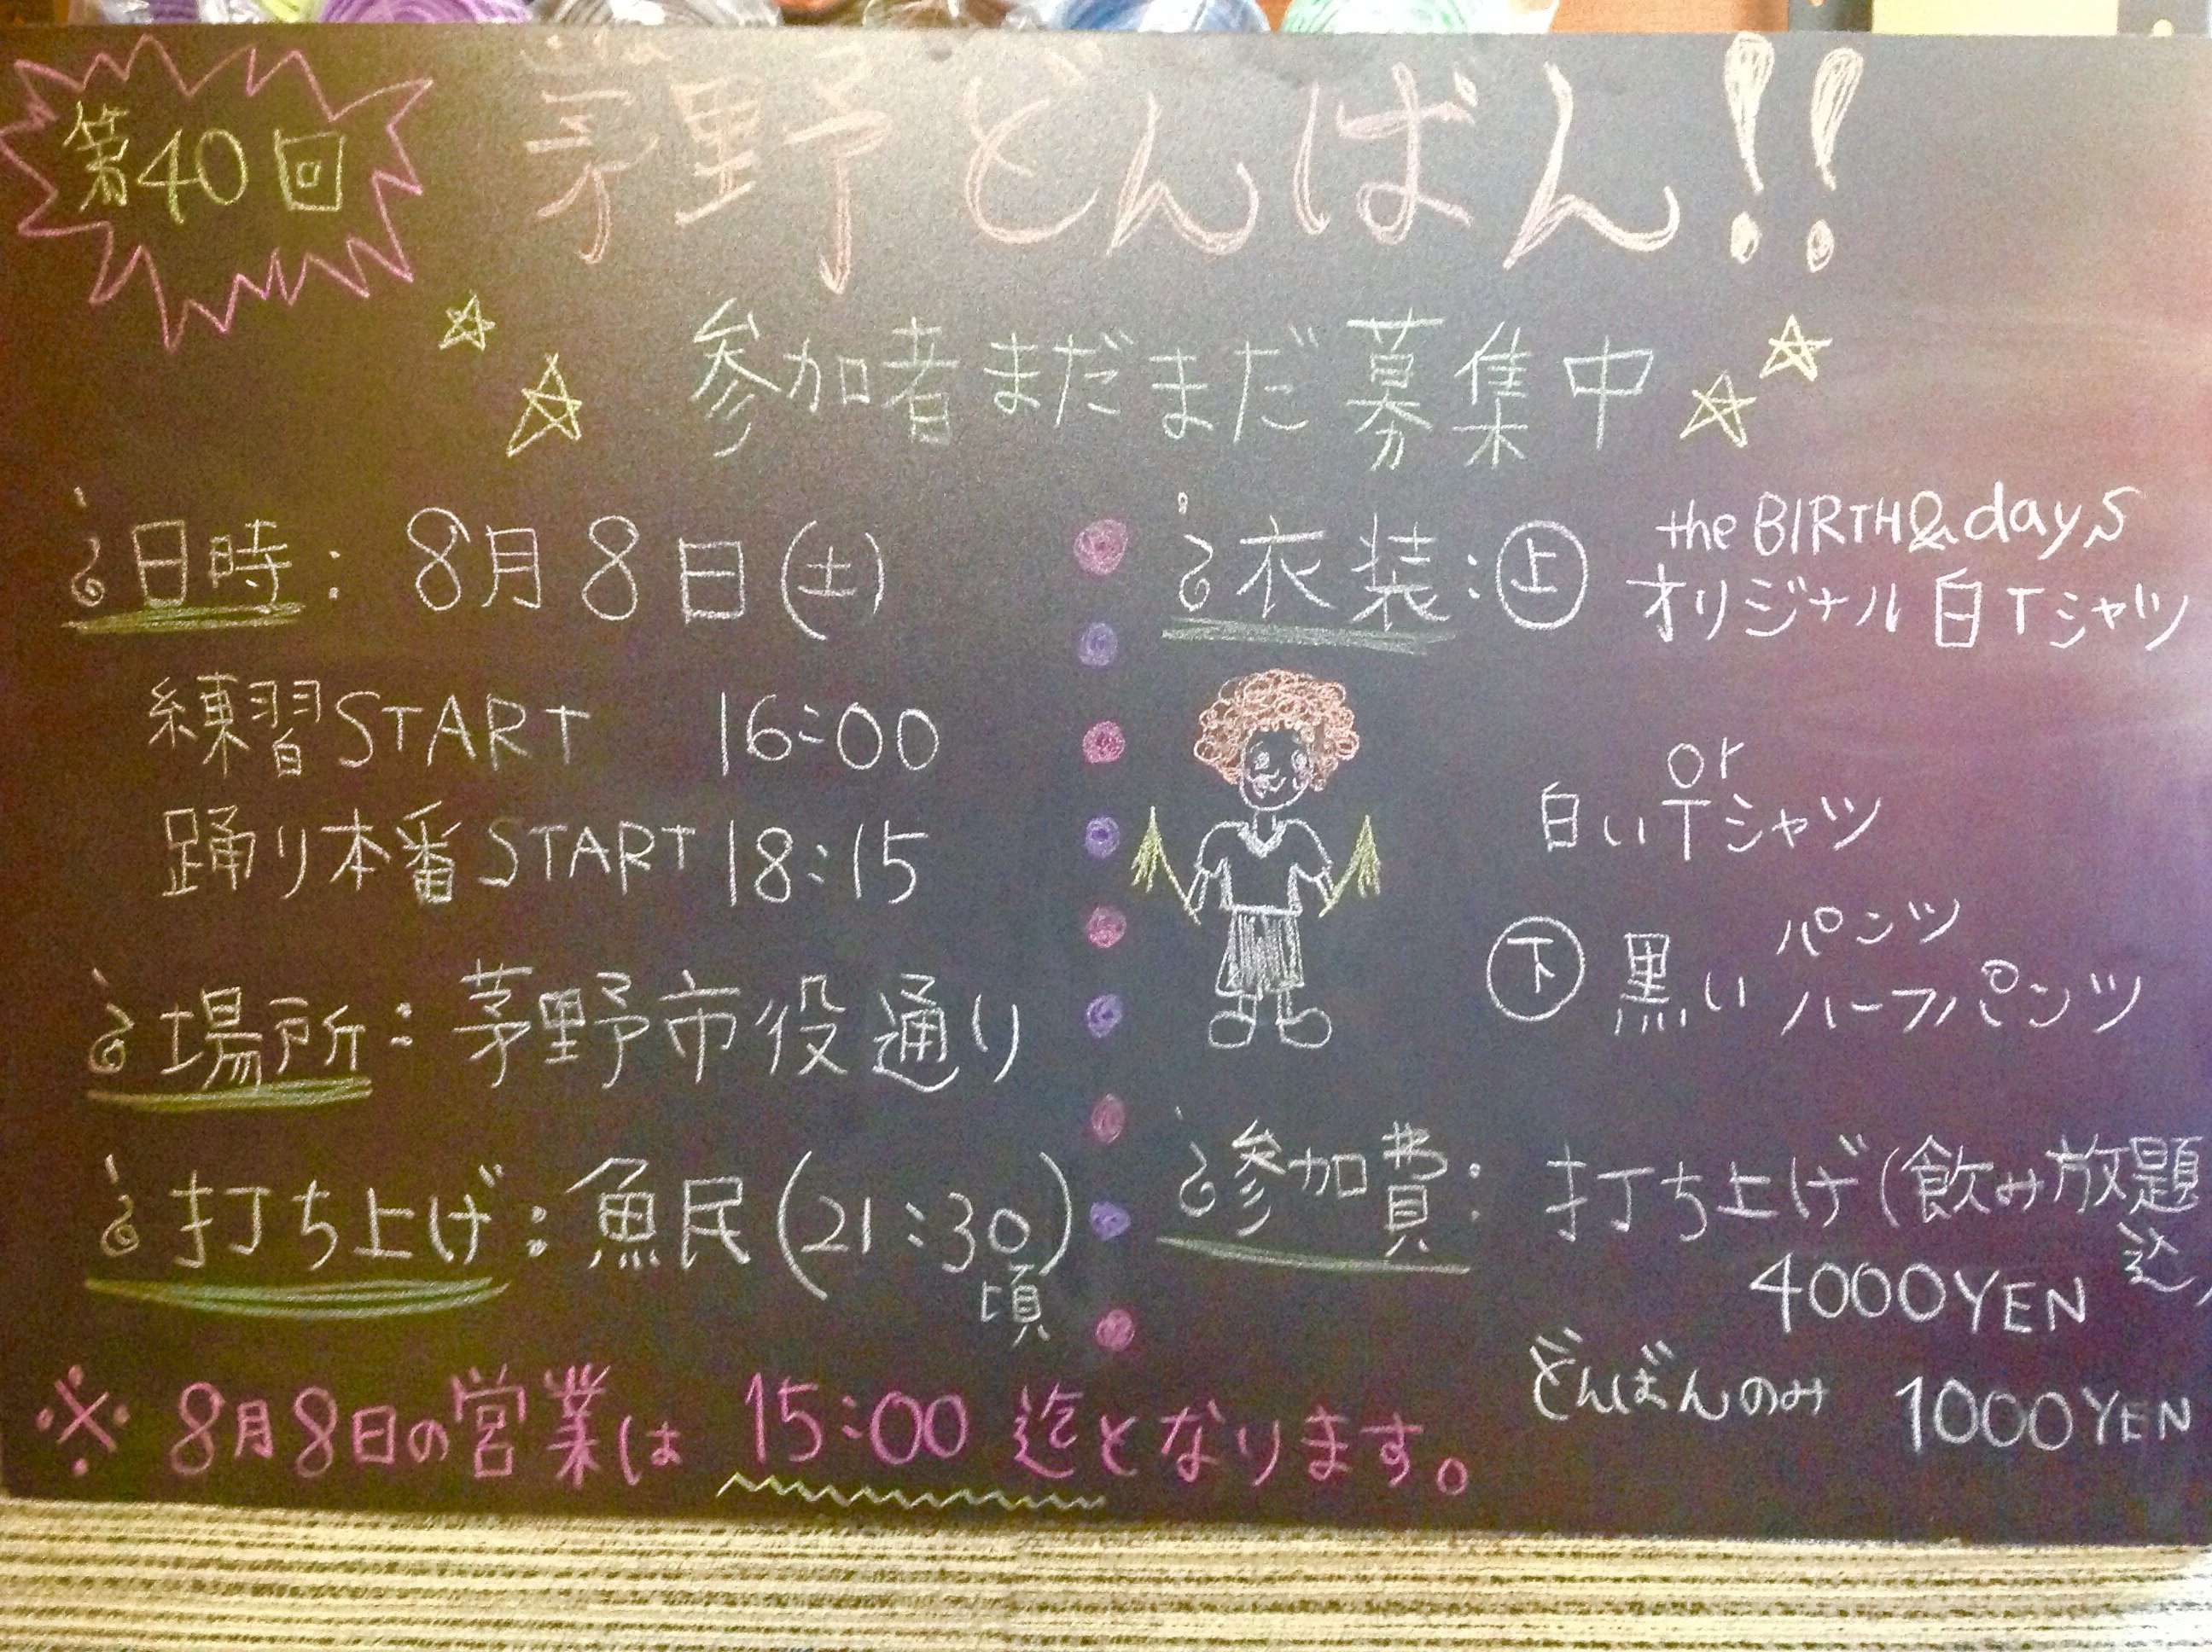 第40回
茅野どんばん!!
参加者まだまだ募集中
日時: 8月8日(土)
練習START 16:00
踊り本番START 18:15
場所: 茅野市役通り
打ち上げ: 魚民(21:30頃)
衣装: 上 the BIRTH&dayS
オリジナル白Tシャツ
or
白いTシャツ
下 黒い パンツ
ハーフパンツ
参加費: 打ち上げ(飲み放題込)
4000YEN
どんばんのみ 1000YEN
※8月8日の営業は 15:00 迄となります。